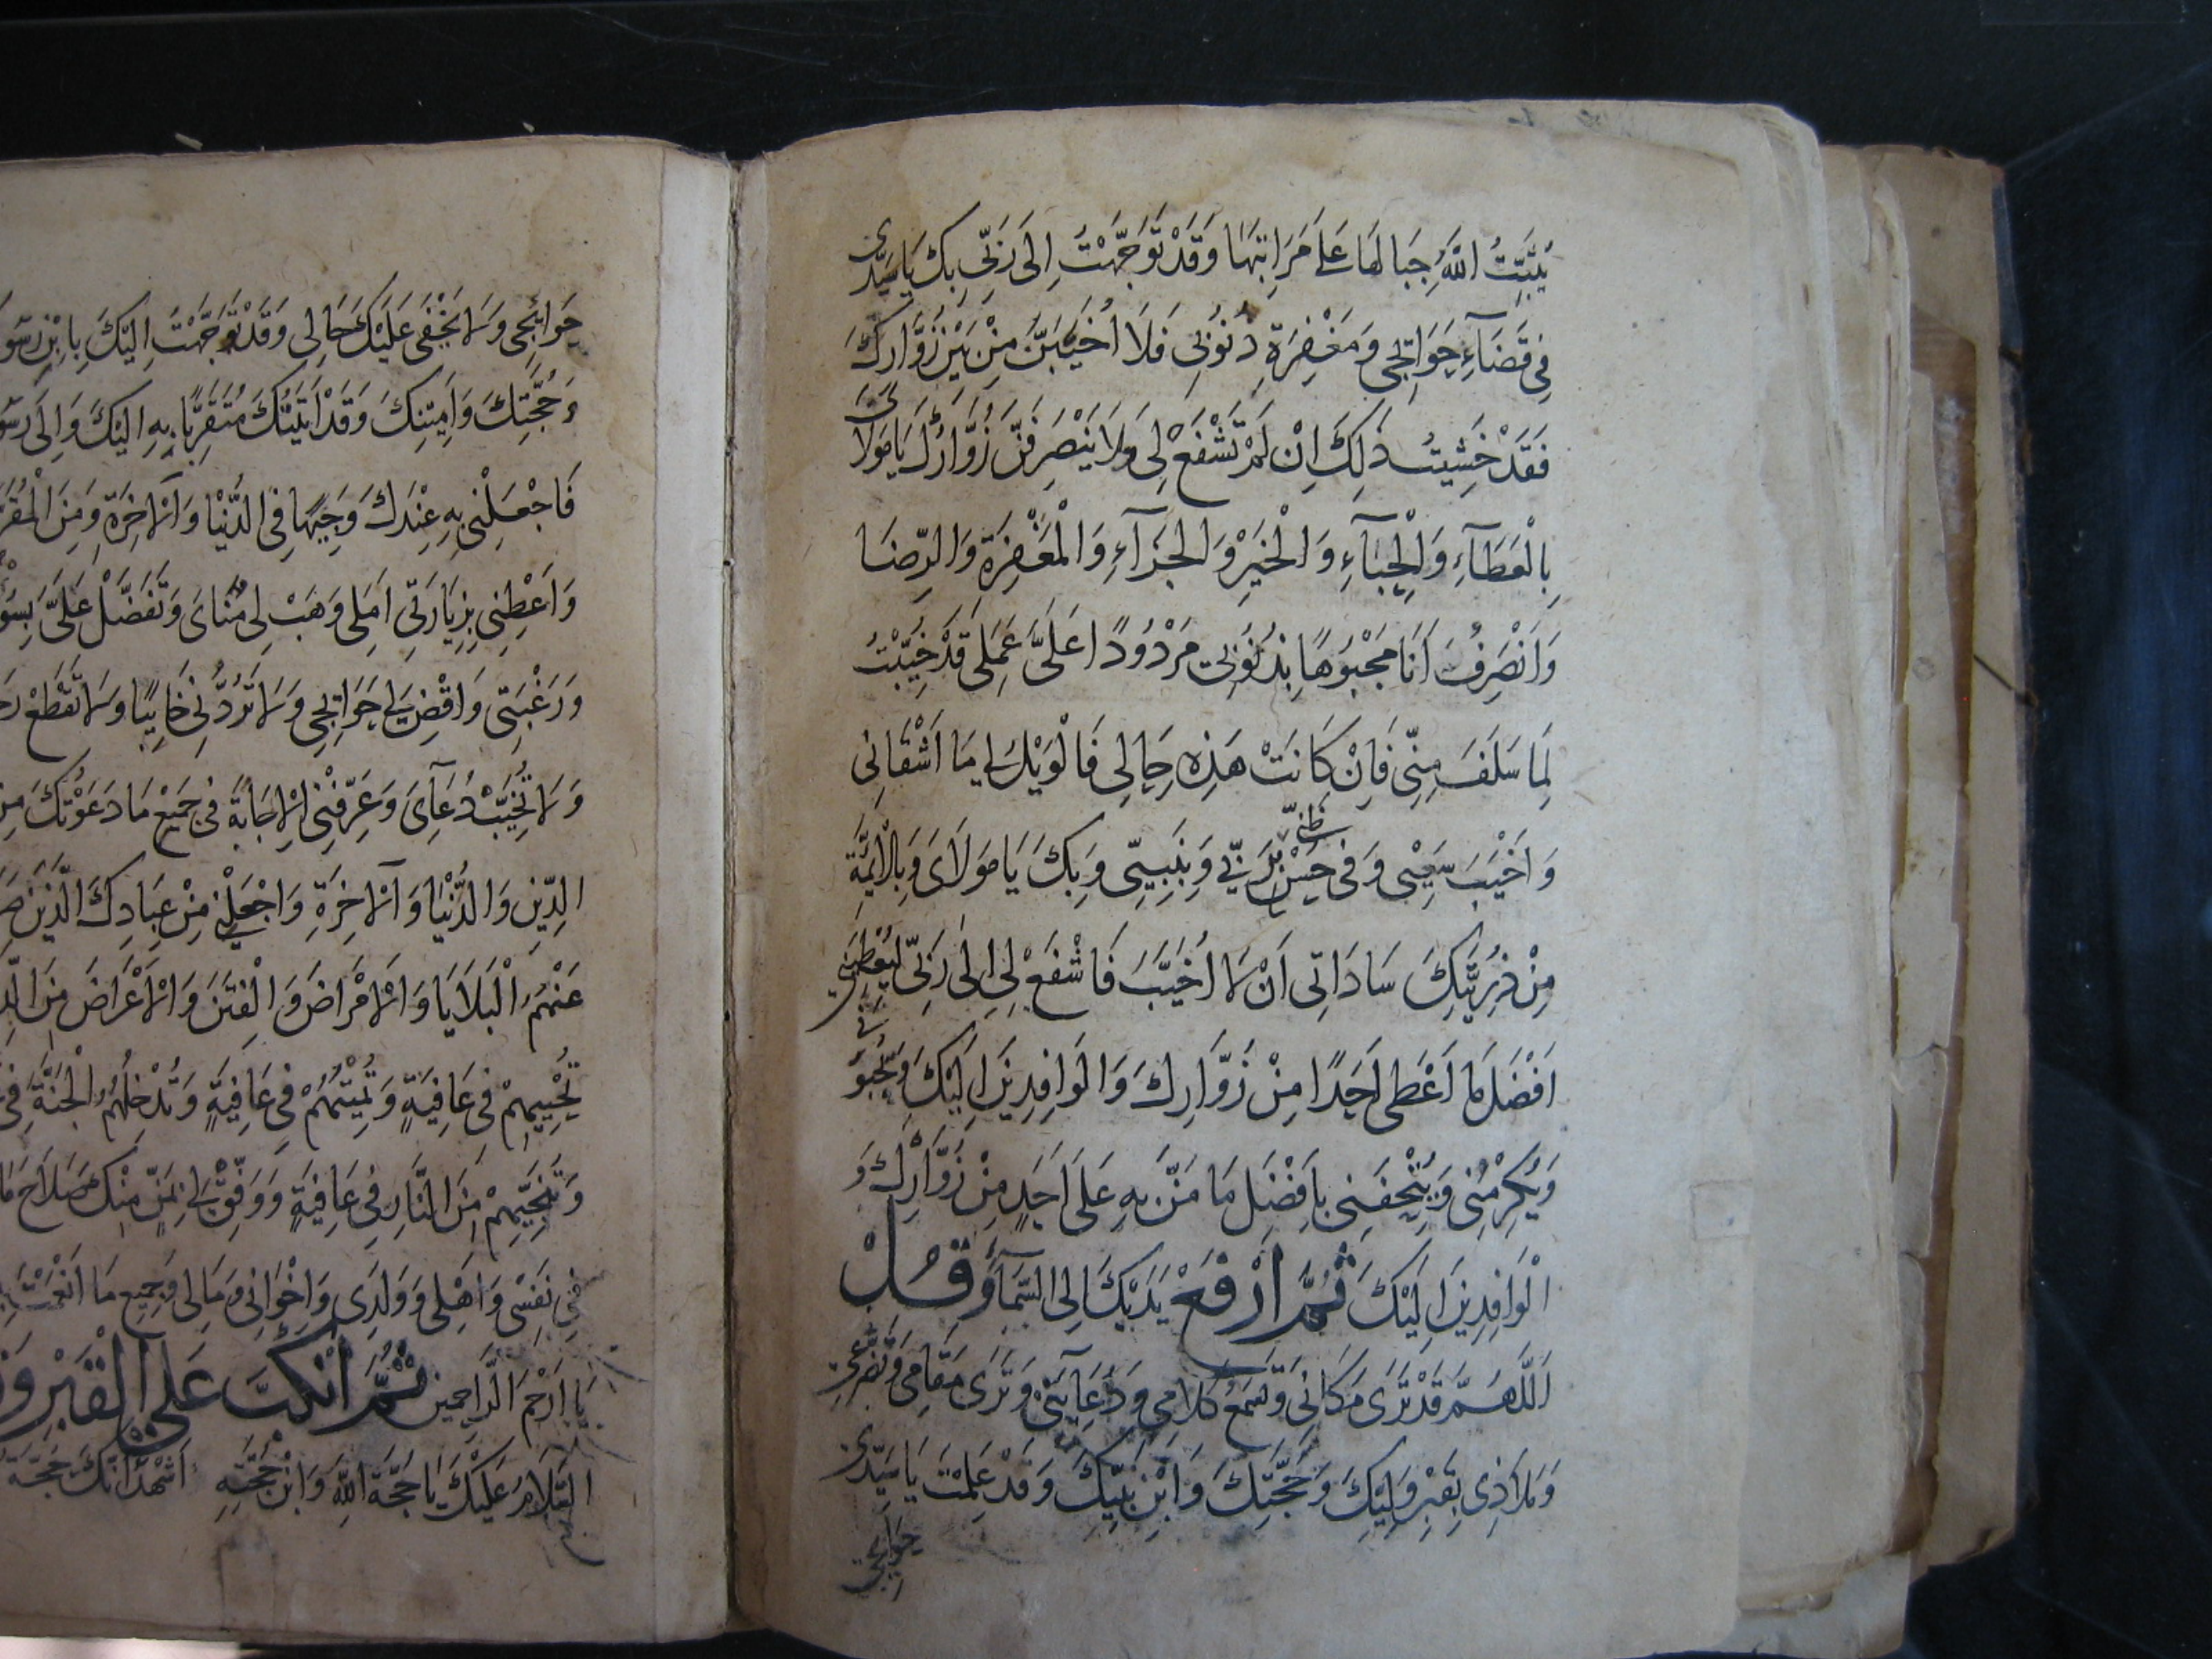 يُثَبِّتُ اللَّهُ جِبَالَهَا عَلَى مَرَاتِبِهَا وَقَدْ تَوَجَّهْتُ اِلَى رَبّى بِكَ يَا سَيّدى
فِى قَضَآءِ حَوَائِجى وَمَغْفِرَةِ ذُنُوبِى فَلَا اُخَيَّبَنَّ مِنْ بَيْنِ زُوَّارِكَ
فَقَدْ خَشِيتُ ذَلِكَ اِنْ لَمْ تَشْفَعْ لِى وَلَا يَنْصَرِفَنَّ زُوَّارُكَ يَا مَوْلَاىَ
بِالْعَطَآءِ وَالْحِبَآءِ وَالْخَيْرِ وَالْجَزَآءِ وَالْمَغْفِرَةِ وَالرِّضَا
وَاَنْصَرِفُ اَنَا مَجْبُوهًا بِذُنُوبِى مَرْدُودًا عَلَىَّ عَمَلِى قَدْ خُيِّبْتُ
لِمَا سَلَفَ مِنِّى فَاِنْ كَانَتْ هَذِهِ حَالِى فَالْوَيْلُ لِى مَا اَشْقَانِى
وَاَخْيَبَ سَعْيِى وَفِى حُسْنِ ظَنِّى بِرَبِّى وَبِنَبِيِّى وَبِكَ يَا مَوْلَاىَ وَبِالْاَئِمَّةِ
مِنْ ذُرِّيَّتِكَ سَادَاتِى اَنْ لَا اُخَيَّبَ فَاشْفَعْ لِى اِلَى رَبِّى لِيُعْطِيَنِى
اَفْضَلَ مَا اَعْطَى اَحَدًا مِنْ زُوَّارِكَ وَالْوَافِدِينَ اِلَيْكَ وَيَحْبُوَنِى
وَيُكْرِمَنِى وَيُتْحِفَنِى بِاَفْضَلِ مَا مَنَّ بِهِ عَلَى اَحَدٍ مِنْ زُوَّارِكَ وَ
الْوَافِدِينَ اِلَيْكَ ثُمَّ ارْفَعْ يَدَيْكَ اِلَى السَّمَآءِ وَقُلْ
اَللَّهُمَّ قَدْ تَرَى مَكَانِى وَتَسْمَعُ كَلَامِى وَدُعَائِى وَتَرَى مَقَامِى وَتَضَرُّعِى
وَمَلَاذِى بِقَبْرِ وَلِيِّكَ وَحُجَّتِكَ وَابْنِ نَبِيِّكَ وَقَدْ عَلِمْتَ يَا سَيّدى
حَوَائِجى
حَوَائِجِى وَلَا يَخْفَى عَلَيْكَ حَالِى وَقَدْ تَوَجَّهْتُ اِلَيْكَ بِابْنِ رَسُو
وَحُجَّتِكَ وَاَمِينِكَ وَقَدْ اَتَيْتُكَ مُتَقَرِّبًا بِهِ اِلَيْكَ وَاِلَى رَسُو
فَاجْعَلْنِى بِهِ عِنْدَكَ وَجِيهًا فِى الدُّنْيَا وَالْآخِرَةِ وَمِنَ الْمُقَرَّ
وَاَعْطِنِى بِزِيَارَتِى اَمَلِى وَهَبْ لِى مُنَاىَ وَتَفَضَّلْ عَلَىَّ بِسُو
وَرَغْبَتِى وَاقْضِ لِى حَوَائِجِى وَلَا تَرُدَّنِى خَائِبًا وَلَا تَقْطَعْ رَجَ
وَلَا تُخَيِّبْ دُعَآئِى وَعَرِّفْنِى الْاِجَابَةَ فِى جَمِيعِ مَا دَعَوْتُكَ مِنْ
الدِّينِ وَالدُّنْيَا وَالْآخِرَةِ وَاجْعَلْنِى مِنْ عِبَادِكَ الَّذِينَ صَرَ
عَنْهُمُ الْبَلَايَا وَالْاَمْرَاضَ وَالْفِتَنَ وَالْاَعْرَاضَ مِنَ الَّذِ
تُحْيِيهِمْ فِى عَافِيَةٍ وَتُمِيتُهُمْ فِى عَافِيَةٍ وَتُدْخِلُهُمُ الْجَنَّةَ فِى
وَتُجِيرُهُمْ مِنَ النَّارِ فِى عَافِيَةٍ وَوَفِّقْ لِى بِمَنٍّ مِنْكَ صَلَاحَ مَا
فِى نَفْسِى وَاَهْلِى وَوَلَدِى وَاِخْوَانِى وَمَالِى وَجَمِيعِ مَا اَنْعَمْتَ
يَا اَرْحَمَ الرَّاحِمِينَ ثُمَّ انْكَبَّ عَلَى الْقَبْرِ وَ
اَلسَّلَامُ عَلَيْكَ يَا حُجَّةَ اللَّهِ وَابْنَ حُجَّتِهِ اَشْهَدُ اَنَّكَ حُجَّةُ